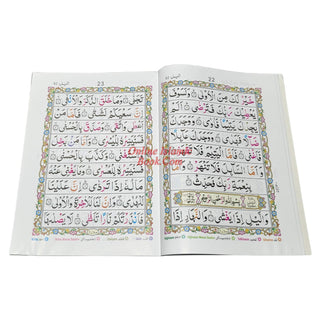 22
خَيْرٌ لَّكَ مِنَ الْأُولٰى وَلَسَوْفَ
يُعْطِيْكَ رَبُّكَ فَتَرْضٰى اَلَمْ
يَجِدْكَ يَتِيْمًا فَاٰوٰى وَوَجَدَكَ
ضَآلًّا فَهَدٰى وَوَجَدَكَ عَآئِلًا
فَاَغْنٰى فَاَمَّا الْيَتِيْمَ فَلَا
تَقْهَرْ وَاَمَّا السَّآئِلَ فَلَا تَنْهَرْ وَاَمَّا
بِنِعْمَةِ رَبِّكَ فَحَدِّثْ
وَالَّيْلِ اِذَا يَغْشٰى وَالنَّهَارِ اِذَا
23
تَجَلّٰى وَمَا خَلَقَ الذَّكَرَ وَالْاُنْثٰى
اِنَّ سَعْيَكُمْ لَشَتّٰى فَاَمَّا مَنْ
اَعْطٰى وَاتَّقٰى وَصَدَّقَ بِالْحُسْنٰى
فَسَنُيَسِّرُهٗ لِلْيُسْرٰى وَاَمَّا مَنْ
بَخِلَ وَاسْتَغْنٰى وَكَذَّبَ بِالْحُسْنٰى
فَسَنُيَسِّرُهٗ لِلْعُسْرٰى وَمَا يُغْنِيْ عَنْهُ
مَالُهٗٓ اِذَا تَرَدّٰى اِنَّ عَلَيْنَا
لَلْهُدٰى وَاِنَّ لَنَا لَلْاٰخِرَةَ وَالْاُوْلٰى
فَاَنْذَرْتُكُمْ نَارًا تَلَظّٰى لَا يَصْلٰىهَآ
Online Islamic
Book.Com